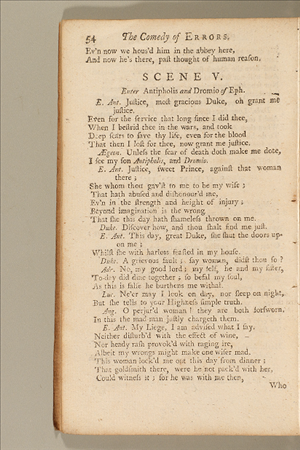 54 The Comedy of ERRORS.
Ev'n now we hous'd him in the abbey here,
And now he's there, past thought of human reason.
SCENE V.
Enter Antipholis and Dromio of Eph.
E. Ant. Justice, most gracious Duke, oh grant me
justice.
Even for the service that long since I did thee,
When I bestrid thee in the wars, and took
Deep scars to save thy life, even for the blood
That then I lost for thee, now grant me justice.
Ægeon. Unless the fear of death doth make me dote,
I see my son Antipholis, and Dromio.
E. Ant. Justice, sweet Prince, against that woman
there;
She whom thou gav'st to me to be my wife;
That hath abused and dishonour'd me,
Ev'n in the strength and height of injury;
Beyond imagination is the wrong
That she this day hath shameless thrown on me.
Duke. Discover how, and thou shalt find me just.
E. Ant. This day, great Duke, she shut the doors up-
on me;
Whilst she with harlots feasted in my house.
Duke. A grievous fault: say woman, didst thou so?
Adr. No, my good lord; my self, he and my sister,
To-day did dine together; so befal my soul,
As this is false he burthens me withal.
Luc. Ne'er may I look on day, nor sleep on night,
But she tells to your Highness simple truth.
Ang. O perjur'd woman! they are both forsworn.
In this the mad man justly chargeth them.
E. Ant. My Liege, I am advised what I say.
Neither disturb'd with the effect of wine,
Nor heady rash provok'd with raging ire,
Albeit my wrongs might make one wiser mad.
This woman lock'd me out this day from dinner;
That goldsmith there, were he not pack'd with her,
Could witness it; for he was with me then,
Who